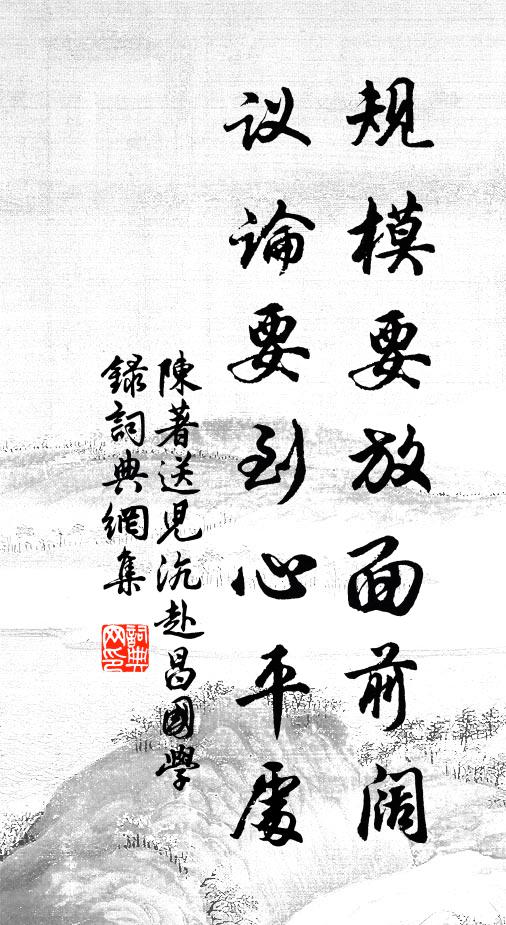 规模要放面前阔
议論要到心平處
陳著送児沆赴昌國學
録詞典網集
詞典
网印